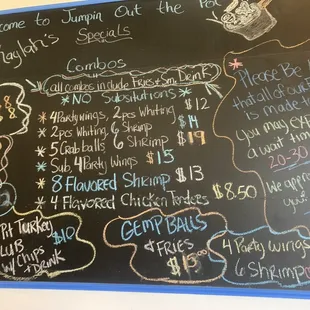 come to Jumpin Out the Pot
naylah's
Specials
Combos
all combos include Fries & Sm. Drink
*NO Substitutions*
* 4 Party wings, 2 pcs Whiting $12
* 2 pcs Whiting 6 Shrimp $14
* 5 Crab balls 6 Shrimp $19
* Sub, 4 Party Wings $15
* 8 Flavored Shrimp $13
* 4 Flavored Chicken Tenders $8.50
Pit Turkey $10
LUB
w/ Chips
+ DRINK
GEMP BALLS
& FRIES
$15
4 Party Wings
6 Shrimp
*
Please Be
that all of ou
is made t
You may exp
a wait tim
20-30
We appre
you